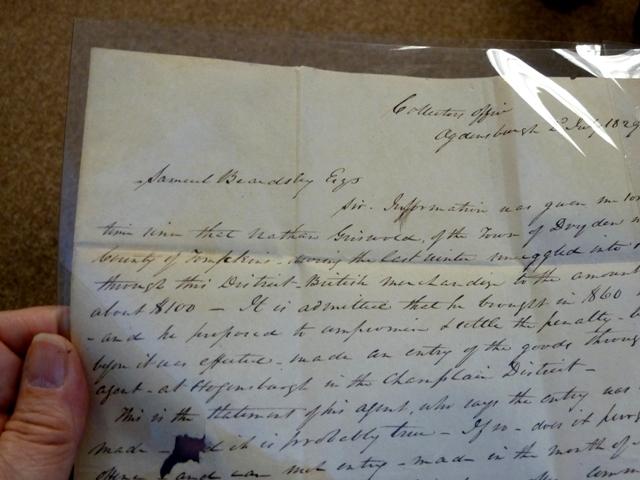 Collectors Office
Ogdensburgh 2d July 1829
Samuel Beardsley Esqr
Sir. Information was given me some
time sinn that Nathan Griswold, of the Town of Dryden
County of Tompkins - during the last winter smuggled into
through this District - British merchandize to the amount
about $100 - It is admitted that he brought in $60
- and he proposed to compromise & settle the penalty -
before it was effected - made an entry of the goods through
agent - at Hogansburgh in the Champlain District -
This is the statement of his agent, who says the entry was
made - d it is probably true - If so - does it
and can not entry - made in the month of